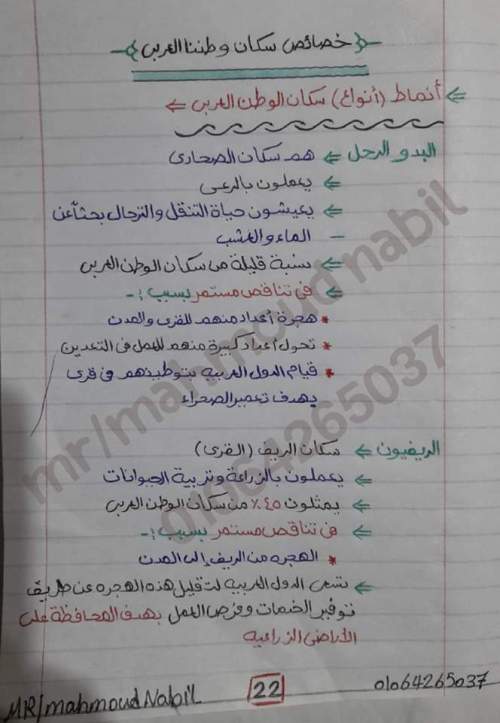 خصائص سكان وطننا العربى
أنماط (أنواع) سكان الوطن العربى
البدو الرحل ⇐ هم سكان الصحارى
⇐ يعملون بالرعى
⇐ يعيشون حياة التنقل والترحال بحثاً عن
الماء والعشب
⇐ نسبة قليلة من سكان الوطن العربى
⇐ فى تناقص مستمر بسبب :-
* هجرة أعداد منهم للقرى والمدن
* تحول أعداد كبيرة منهم للعمل فى التعدين
* قيام الدول العربيه بتوطينهم فى قرى
بهدف تعمير الصحراء
الريفيون ⇐ سكان الريف (القرى)
⇐ يعملون بالزراعة وتربية الحيوانات
⇐ يمثلون ٤٥٪ من سكان الوطن العربى
⇐ فى تناقص مستمر بسبب :-
* الهجره من الريف إلى المدن
⇐ تسعى الدول العربيه لتقليل هذه الهجره عن طريق
توفير الخدمات وفرص العمل بهدف المحافظة على
الأراضى الزراعيه
MR/mahmoud Nabil 22 01064265037
mr/mahmoud nabil
01064265037